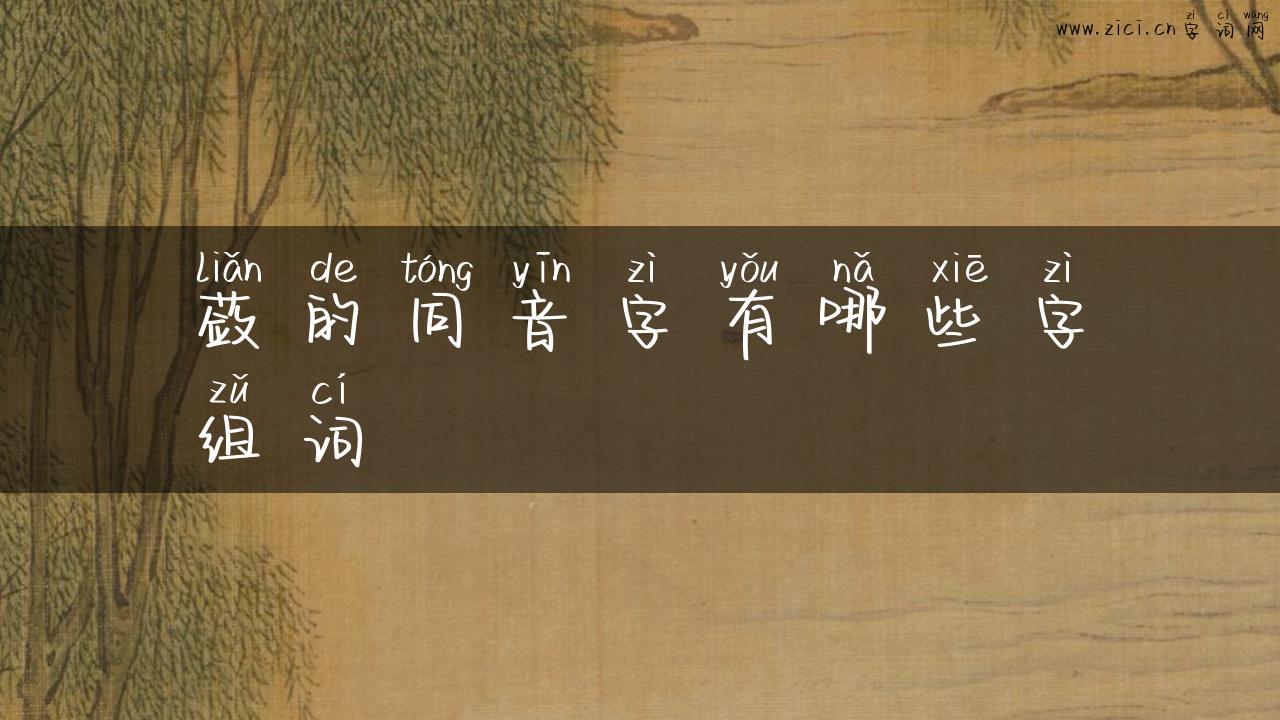 zì cí wǎng
www.zici.cn 字词网
liǎn de tóng yīn zì yǒu nǎ xiē zì
蔹的同音字有哪些字
zǔ cí
组词